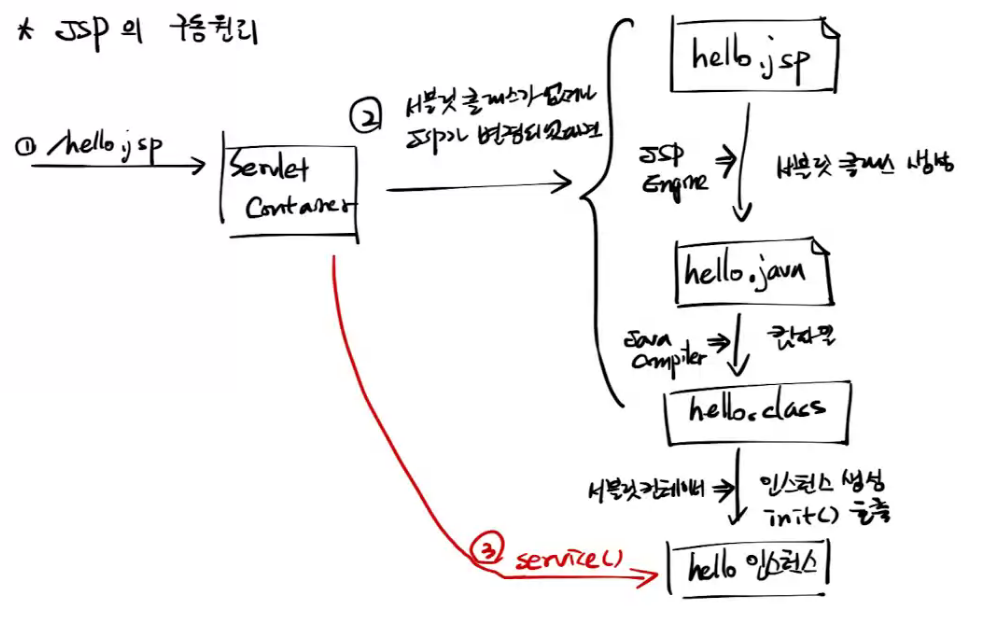 * JSP의 구동원리
① /hello.jsp
Servlet
Container
② 서블릿 클래스가 없거나
JSP가 변경되었다면
hello.jsp
JSP
Engine
서블릿 클래스 생성
hello.java
Java
Compiler
컴파일
hello.class
서블릿컨테이너
인스턴스 생성
init() 호출
③ service()
hello 인스턴스